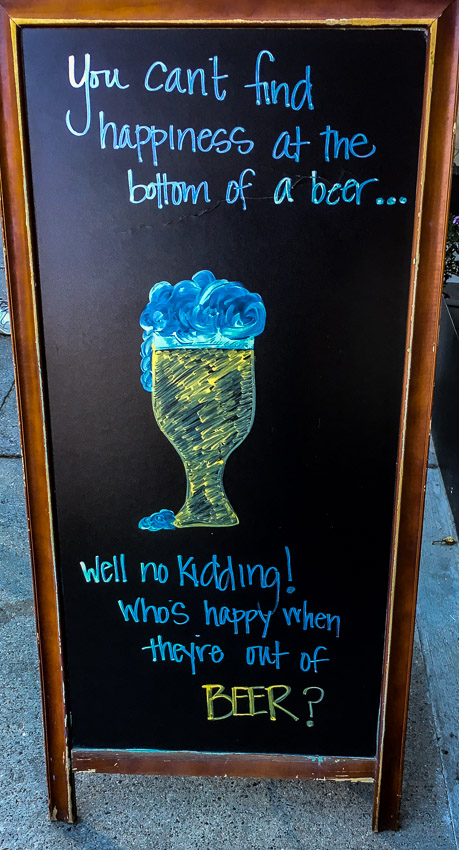 You can't find
happiness at the
bottom of a beer...
Well no Kidding!
Who's happy when
they're out of
BEER?